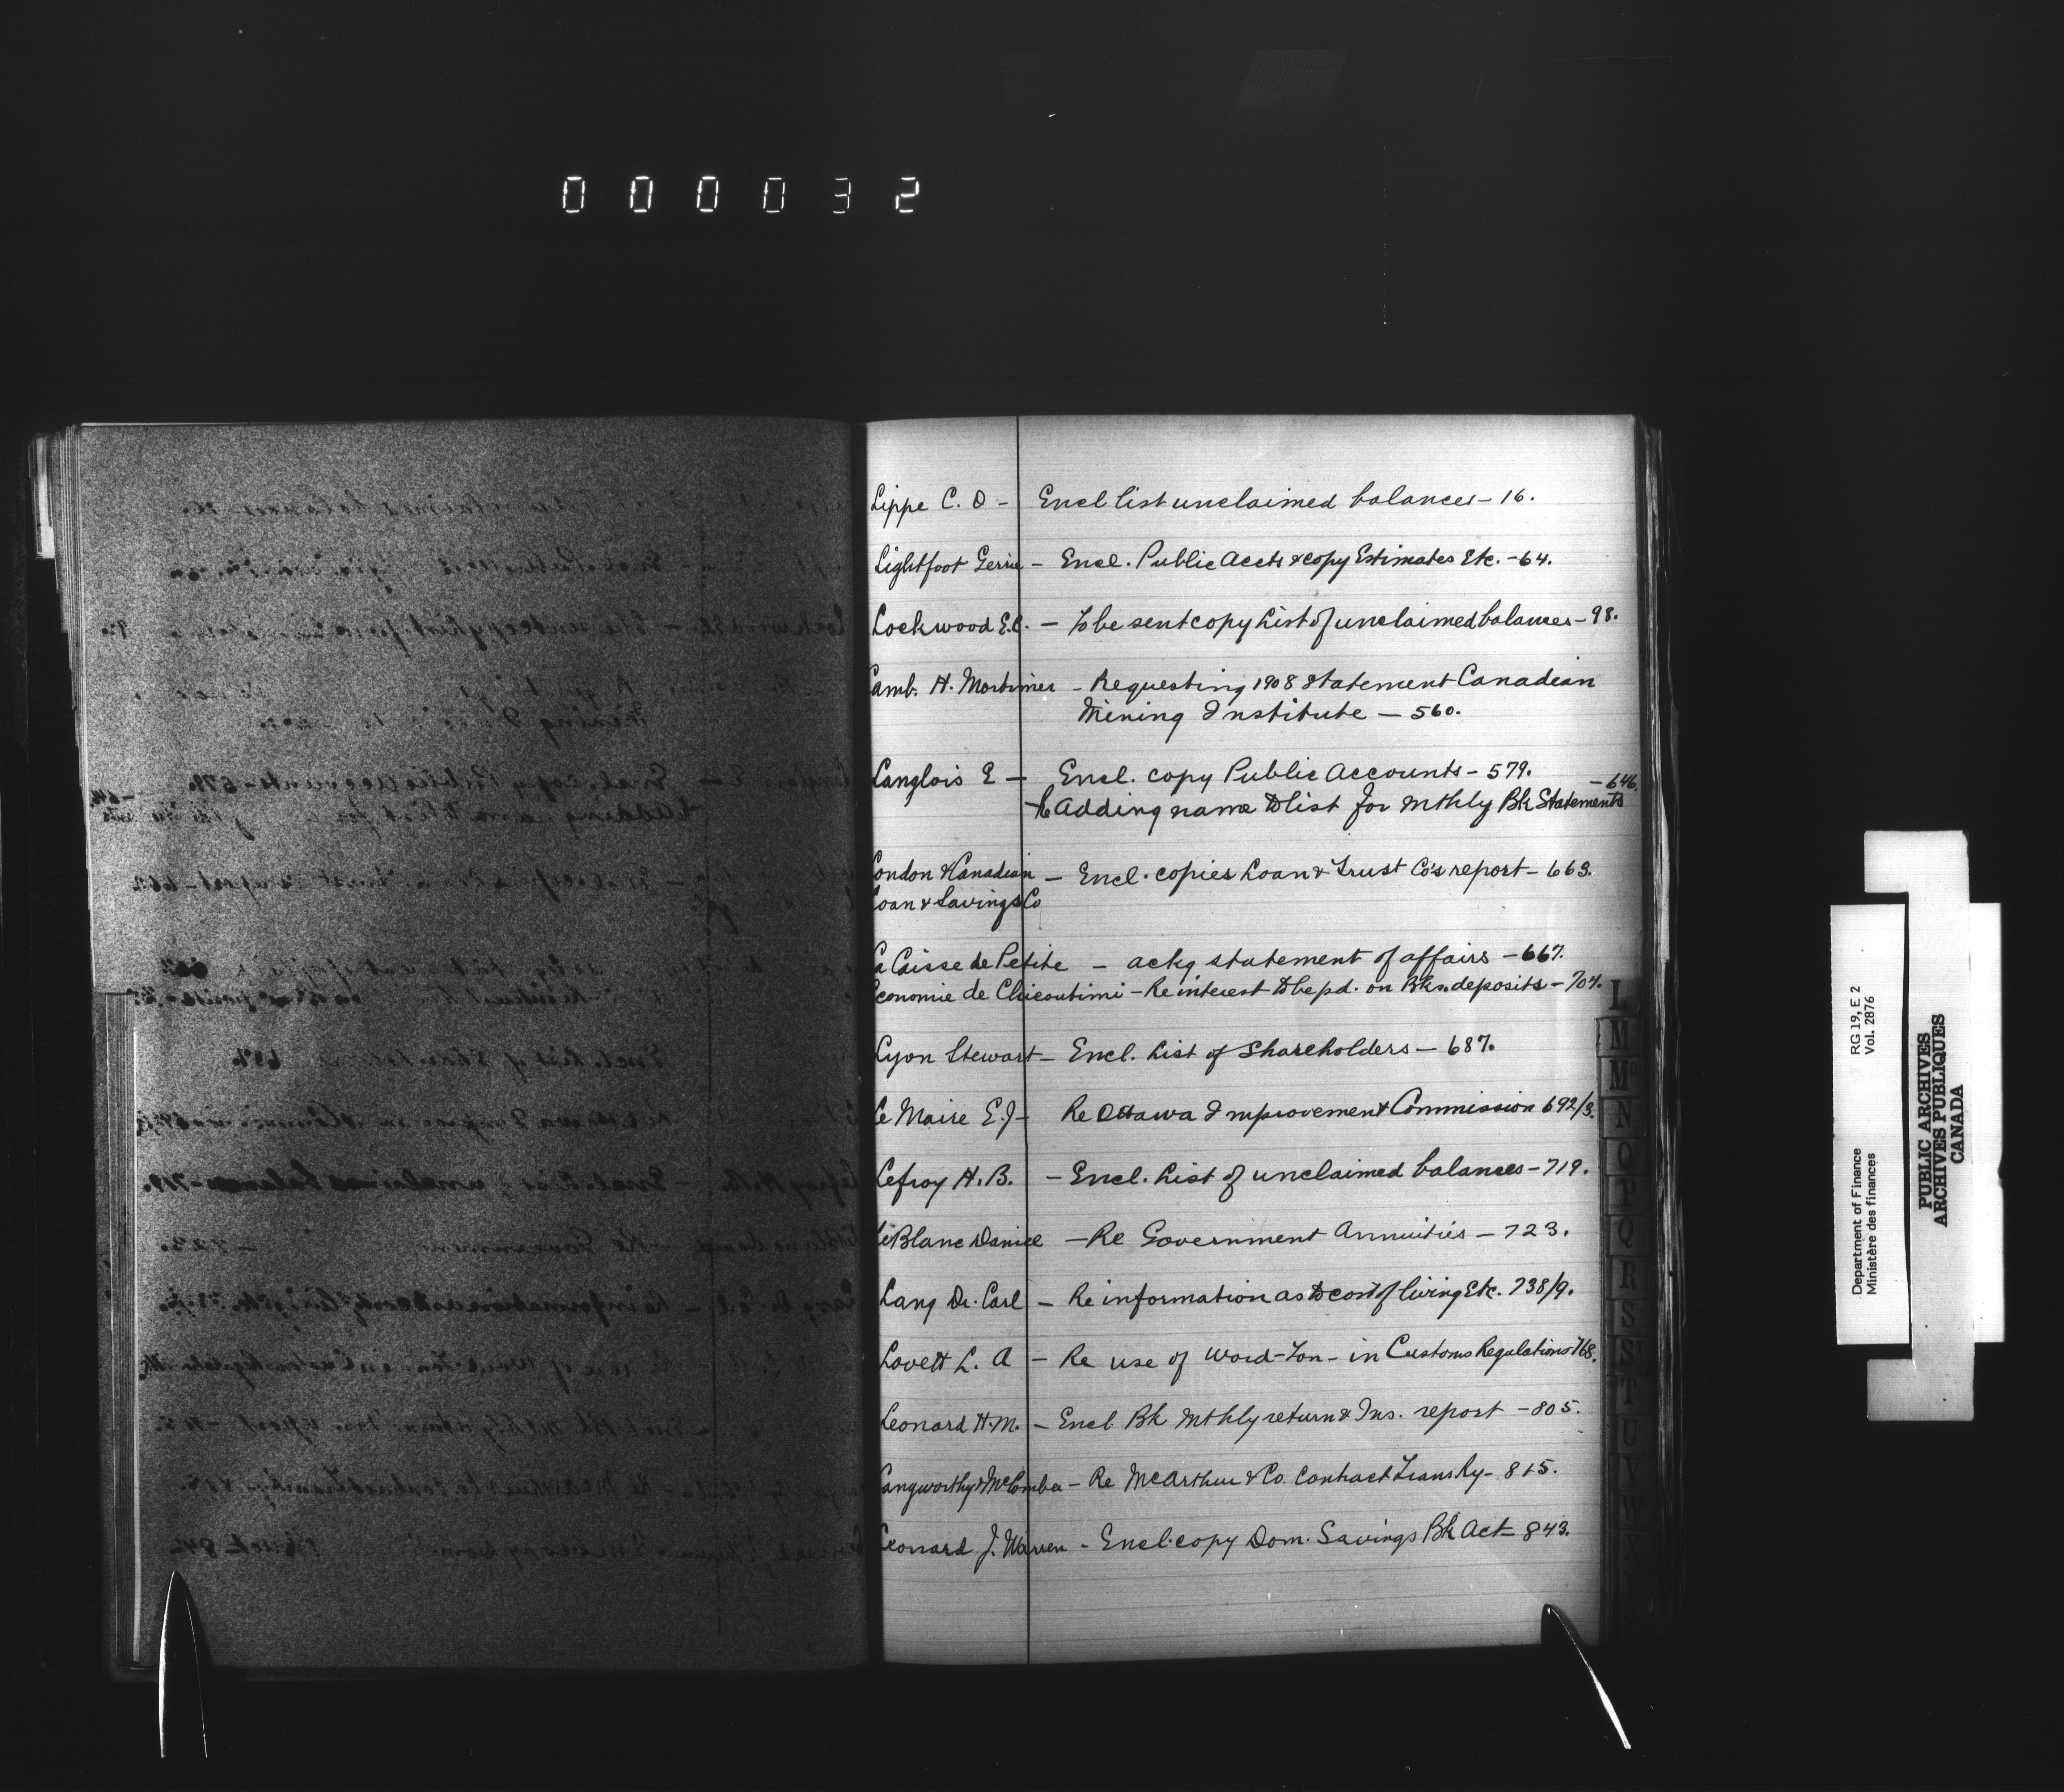 000032
Lippe C. O - Encl list unclaimed balances - 16.
Lightfoot Gerrie - Encl. Public Accts & copy Estimates Etc. - 64.
Lockwood E.C. - To be sent copy List of unclaimed balances - 98.
Lamb. H. Mortimer - Requesting 1908 statement Canadian
Mining Institute - 560.
Langlois E - Encl. copy Public Accounts - 579.
- 646.
& Adding name to list for Mthly Bk Statements
London & Canadian - Encl. copies Loan & Trust Co's report - 663.
Loan & Savings Co
La Caisse de Petite - ackg statement of affairs - 667.
Economie de Chicoutimi - Re interest to be pd. on Bks. deposits - 704.
Lyon Stewart - Encl. List of Shareholders - 687.
Le Maire E.J - Re Ottawa Improvement Commission 692/3.
Lefroy H. B. - Encl. List of unclaimed balances - 719.
LeBlanc Daniel - Re Government Annuities - 723.
Lang Dr. Carl - Re information as to cost of living Etc. 738/9.
Lovett L. A - Re use of word - Ton - in Customs Regulations 768.
Leonard H.M. - Encl Bk Mthly return & Ins. report - 805.
Langworthy & McComber - Re McArthur & Co. Contract Trans Ry - 815.
Leonard J. Warren - Encl. copy Dom. Savings Bk Act - 843.
L
M
Mc
N
O
P
Q
R
S
S
T
U
V
W
Department of Finance RG 19, E 2
Ministère des finances Vol. 2876
PUBLIC ARCHIVES
ARCHIVES PUBLIQUES
CANADA